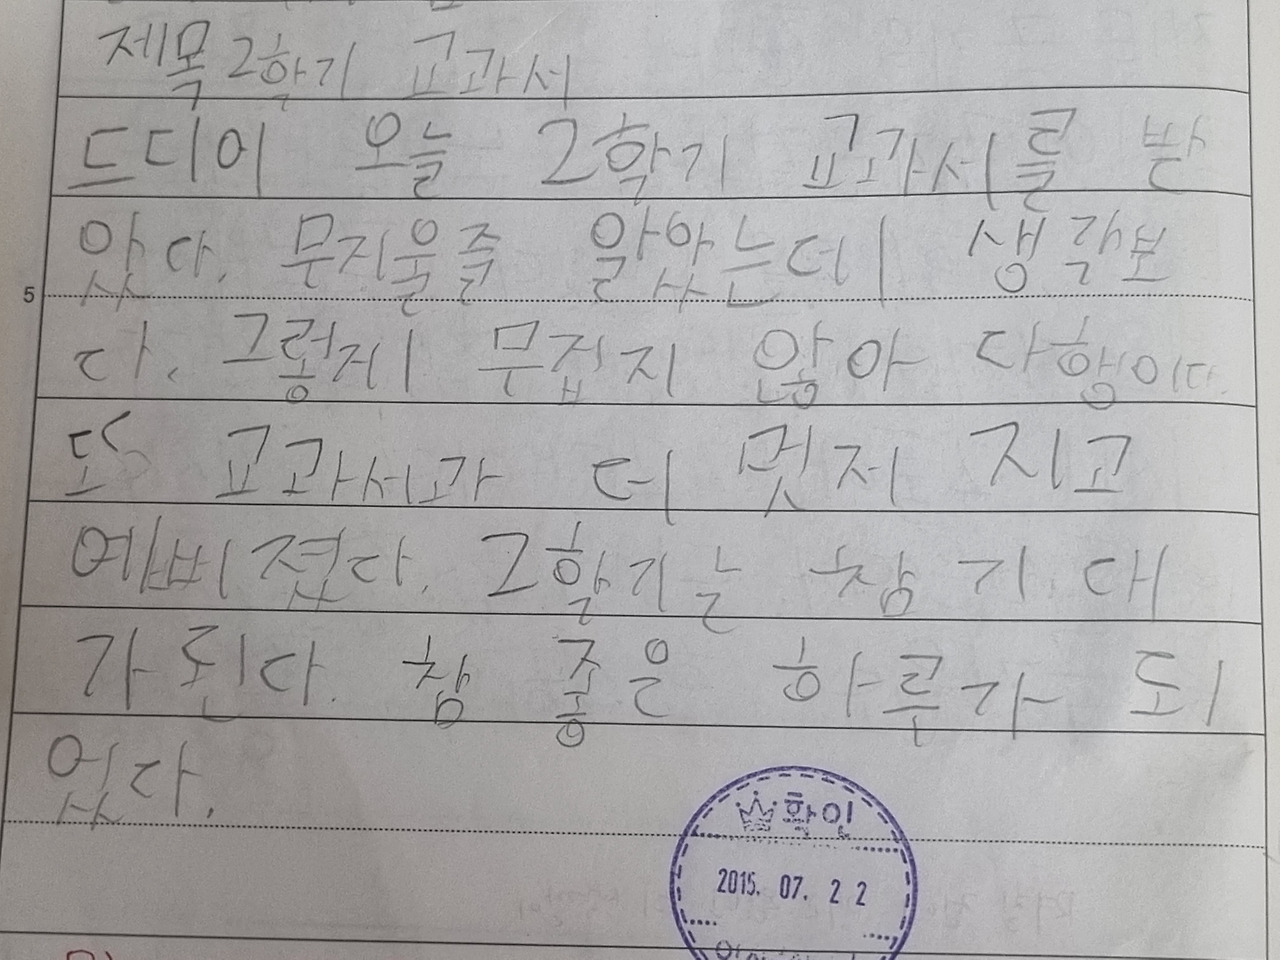 제목 2학기 교과서
드디이 오늘 2학기 교과서를 받
았다. 무지울줄 알았는데 생각보
다. 그렇게 무겁지 않아 다행이다.
또 교과서가 더 멋저 지고
예뻐졌다. 2학기는 참 기대
가 된다. 참 좋은 하루가 되
었다.
5
확인
2015. 07. 22